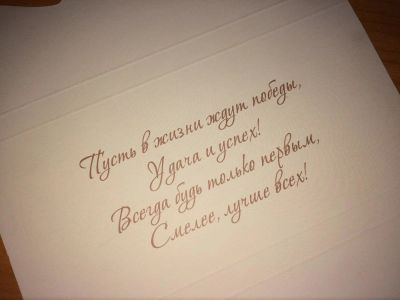 Пусть в жизни ждут победы,
Удача и успех!
Всегда будь только первым,
Смелее, лучше всех!